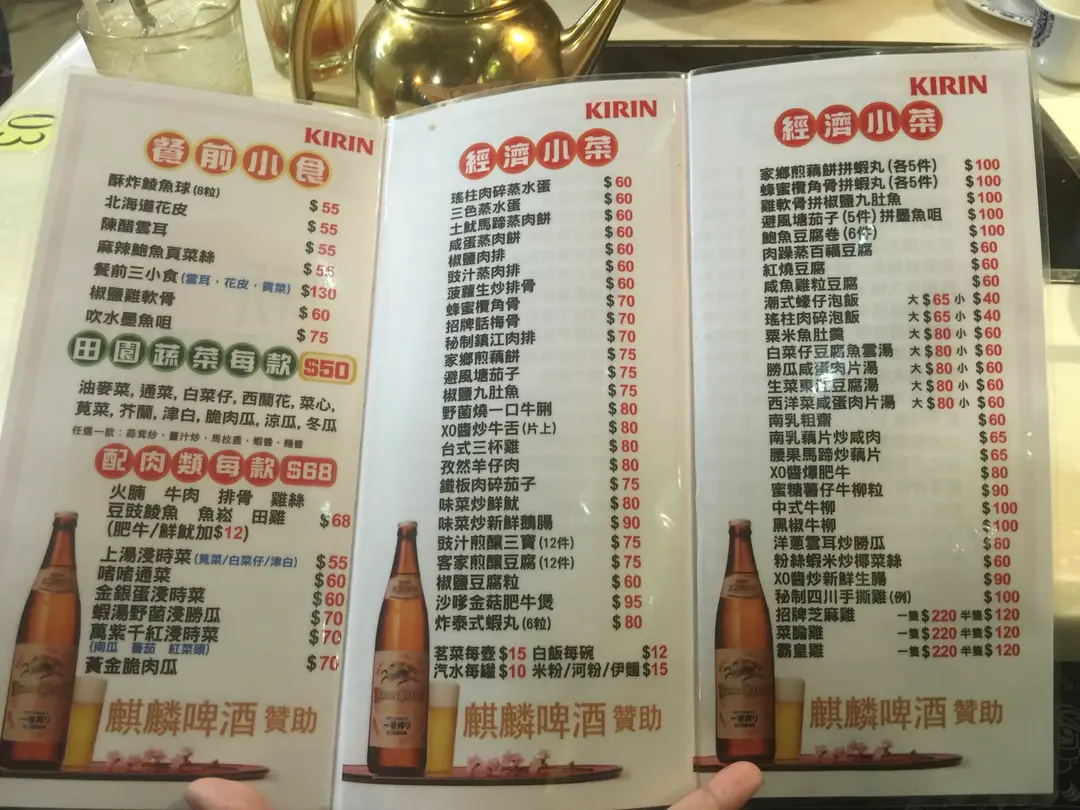 03
KIRIN
餐前小食
酥炸鯪魚球(8粒) $55
北海道花皮 $55
陳醋雲耳 $55
麻辣鮑魚貢菜絲 $55
餐前三小食(雲耳，花皮，貢菜) $130
椒鹽雞軟骨 $60
吹水墨魚咀 $75
田園蔬菜每款 $50
油麥菜, 通菜, 白菜仔, 西蘭花, 菜心,
莧菜, 芥蘭, 津白, 脆肉瓜, 涼瓜, 冬瓜
任選一款：蒜茸炒，薑汁炒，馬拉盞，蝦醬，麵醬
配肉類每款 $68
火腩 牛肉 排骨 雞絲
豆豉鯪魚 魚崧 田雞 $68
(肥牛/鮮魷加$12)
上湯浸時菜(莧菜/白菜仔/津白) $55
啫啫通菜 $60
金銀蛋浸時菜 $60
蝦湯野菌浸勝瓜 $70
萬紫千紅浸時菜 $70
(南瓜 蕃茄 紅菜頭)
黃金脆肉瓜 $70
麒麟啤酒 贊助
KIRIN
經濟小菜
瑤柱肉碎蒸水蛋 $60
三色蒸水蛋 $60
土魷馬蹄蒸肉餅 $60
咸蛋蒸肉餅 $60
椒鹽肉排 $60
豉汁蒸肉排 $60
菠蘿生炒排骨 $60
蜂蜜欖角骨 $70
招牌話梅骨 $70
秘制鎮江肉排 $70
家鄉煎藕餅 $75
避風塘茄子 $75
椒鹽九肚魚 $75
野菌燒一口牛脷 $80
XO醬炒牛舌(片上) $80
台式三杯雞 $80
孜然羊仔肉 $80
鐵板肉碎茄子 $75
味菜炒鮮魷 $80
味菜炒新鮮鵝腸 $90
豉汁煎釀三寶(12件) $75
客家煎釀豆腐(12件) $75
椒鹽豆腐粒 $60
沙嗲金菇肥牛煲 $95
炸泰式蝦丸(6粒) $80
茗菜每壺 $15 白飯每碗 $12
汽水每罐 $10 米粉/河粉/伊麵 $15
麒麟啤酒 贊助
KIRIN
經濟小菜
家鄉煎藕餅拼蝦丸(各5件) $100
蜂蜜欖角骨拼蝦丸(各5件) $100
雞軟骨拼椒鹽九肚魚 $100
避風塘茄子(5件)拼墨魚咀 $100
鮑魚豆腐卷(6件) $100
肉躁蒸百福豆腐 $60
紅燒豆腐 $60
咸魚雞粒豆腐 $60
潮式蠔仔泡飯 大$65 小$40
瑤柱肉碎泡飯 大$65 小$40
粟米魚肚羹 大$80 小$60
白菜仔豆腐魚雲湯 大$80 小$60
勝瓜咸蛋肉片湯 大$80 小$60
生菜東江豆腐湯 大$80 小$60
西洋菜咸蛋肉片湯 大$80 小$60
南乳粗齋 $60
南乳藕片炒咸肉 $65
腰果馬蹄炒藕片 $65
XO醬爆肥牛 $80
蜜糖薯仔牛柳粒 $90
中式牛柳 $100
黑椒牛柳 $100
洋蔥雲耳炒勝瓜 $60
粉絲蝦米炒椰菜絲 $60
XO醬炒新鮮生腸 $90
秘制四川手撕雞(例) $100
招牌芝麻雞 一隻$220 半隻$120
菜膽雞 一隻$220 半隻$120
霸皇雞 一隻$220 半隻$120
麒麟啤酒 贊助